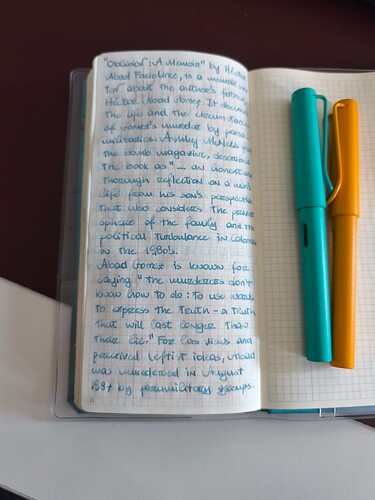 "Oblivion: A Memoir" by Héctor
Abad Faciolince, is a memoir
about the author's father,
Héctor Abad Gómez. It
the life and the circumstan
of Gomez's murder by para
militaries. Ashley
the bomb magazine, describ
the book as "... an honest and
thorough reflection on a man's
life from his son's perspective
that also considers the private
sphere of the family and the
political turbulence in Colombia
in the 1980s.
Abad Gomez is known for
saying " the murderers don't
know how to do: to use words
to express the truth - a truth
that will last longer than
their lie." For his views and
perceived leftist ideas, Abad
was murdered in August
1987 by paramilitary groups.